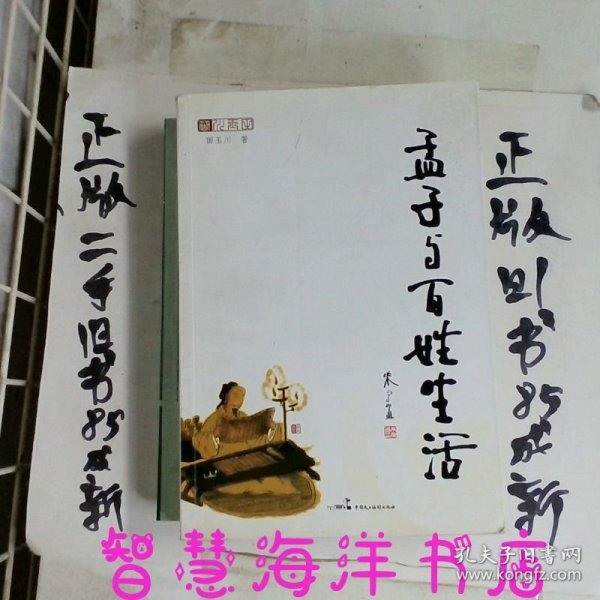 正版二手旧书85成新
田玉川 著
孟子与百姓生活
中国民主法制出版社
正版旧书85成新
智慧海洋书店
孔夫子旧书网
www.kongfz.com